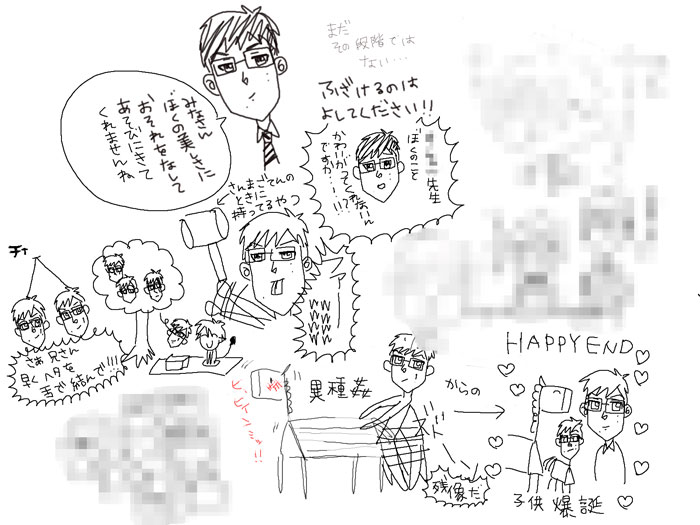 まだ
その段階では
ない…
ふざけるのは
よしてください!!
みなさん
ぼくの美しさに
おそれをなして
あそびにきて
くれませんね
先生
ぼくのこと
かわいがってくれないん
ですか……!!
さんまごてんの
ときに
持ってるやつ
チィ
さあ兄さん
早くヘタを
舌で結んで!!!
WWWW
WWWW
ヒ、
ヒヒィンッ!!
異種姦
からの
残像だ
HAPPY END
子供爆誕